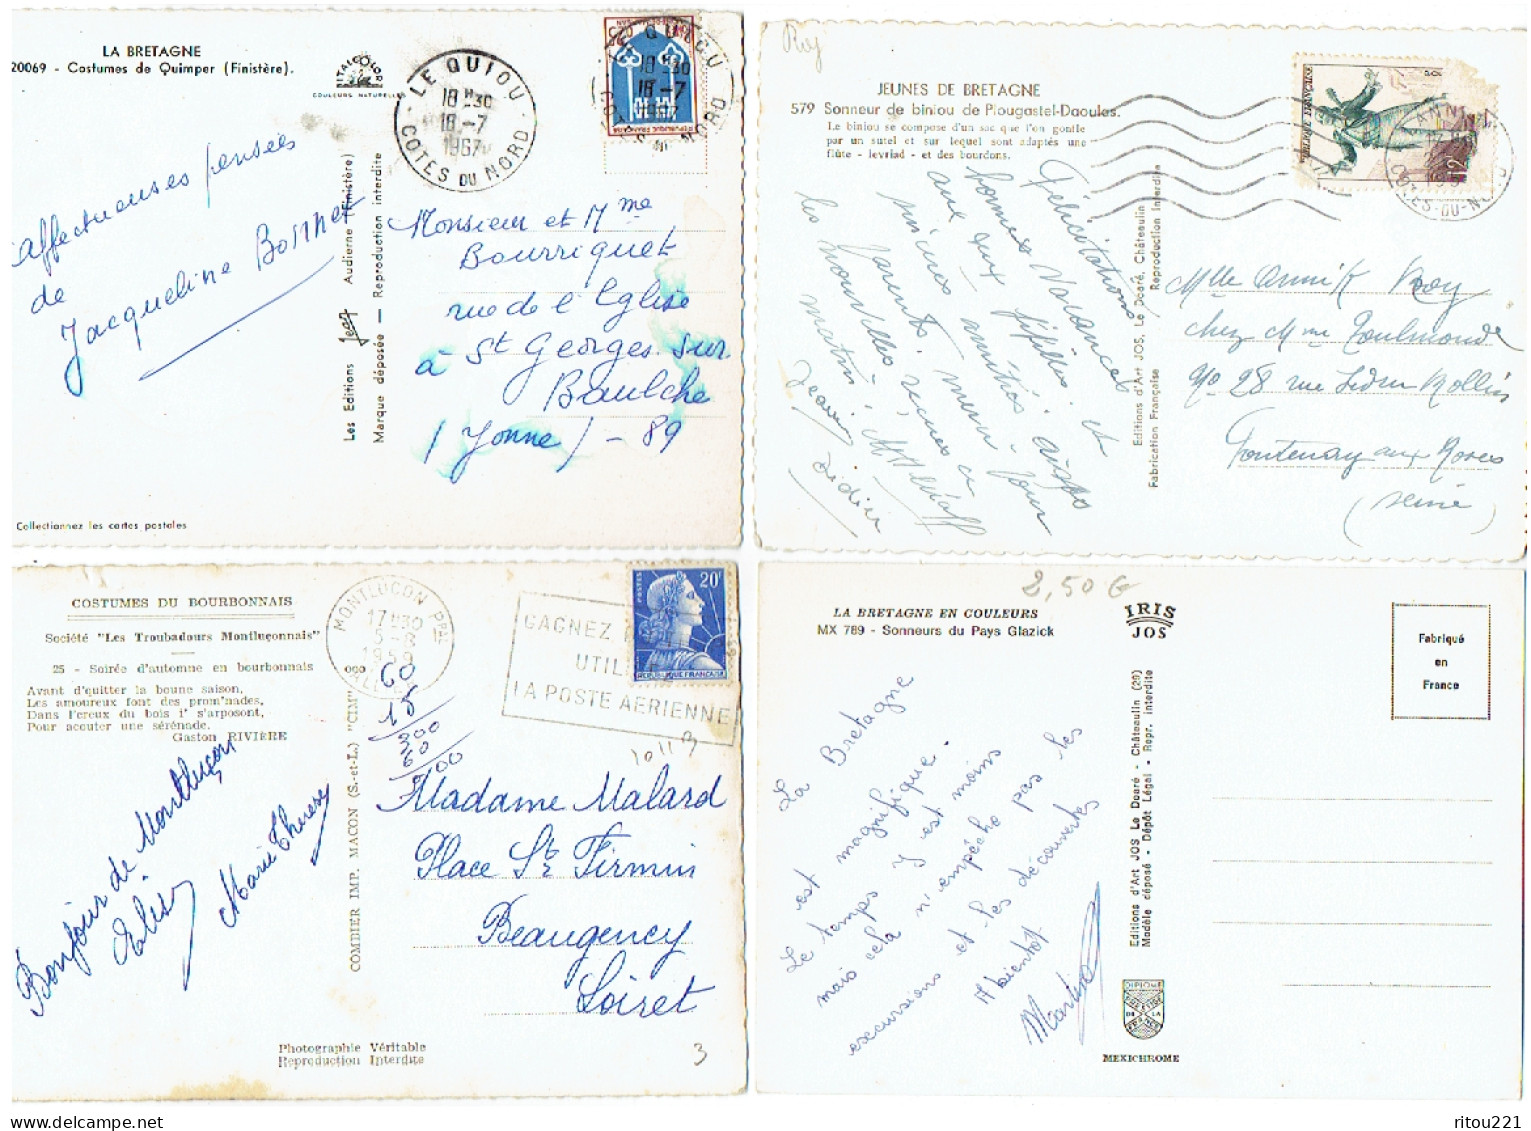 LA BRETAGNE
20069 - Costumes de Quimper (Finistère).
ITALCOLOR
COULEURS NATURELLES
LE QUIOU
18 H30
18 -7
1967
COTES DU NORD
REPUBLIQUE FRANÇAISE
Affectueuses pensées
de
Jacqueline Bonnet
Les Editions Jean Audierne (Finistère)
Marque déposée — Reproduction interdite
Monsieur et Mme
Bourriquet
rue de l'Eglise
à St Georges sur
Baulche
(Yonne) - 89
Collectionnez les cartes postales
Roy
JEUNES DE BRETAGNE
579 Sonneur de biniou de Plougastel-Daoulas.
Le biniou se compose d'un sac que l'on gonfle
par un sutel et sur lequel sont adaptés une
flûte - levriad - et des bourdons.
REPUBLIQUE FRANÇAISE
12
COTES-DU-NORD
Félicitations
bonnes vacances
aux deux fifilles. et
amitiés aux
parents. merci pour
les nouvelles reçues ce
matin.
Didier
Editions d'Art JOS, Le Doaré, Châteaulin
Fabrication Française
Reproduction Interdite
Mlle Annik Roy
chez Mme Toulmonde
28 rue Ledru Rollin
Fontenay aux Roses
(Seine)
COSTUMES DU BOURBONNAIS
Société "Les Troubadours Montluçonnais"
25 - Soirée d'automne en bourbonnais
Avant d'quitter la boune saison,
Les amoureux font des prom'nades,
Dans l'creux du bois i' s'arposont,
Pour acouter une sérénade.
Gaston RIVIÈRE
MONTLUCON PPAL
17 H30
5 -8
1959
ALLIER
GAGNEZ
UTIL
LA POSTE AERIENNE
POSTES
20F
REPUBLIQUE FRANÇAISE
60
15
300
60
Bonjour de Montluçon
Marie Therese
COMBIER IMP. MACON (S.-et-L.) "CIM"
Madame Malard
Place St Firmin
Beaugency
Loiret
Photographie Véritable
Reproduction Interdite
3
2,50 €
LA BRETAGNE EN COULEURS
MX 789 - Sonneurs du Pays Glazick
IRIS
JOS
Fabriqué
en
France
La Bretagne
est magnifique.
Le temps y est moins
mais cela n'empêche pas les
excursions et les découvertes
A bientôt
Martine
Editions d'Art JOS Le Doaré - Châteaulin (29)
Modèle déposé - Dépôt Légal - Repr. interdite
DIPLOME
DE LA
MEXICHROME
www.delcampe.net
ritou221